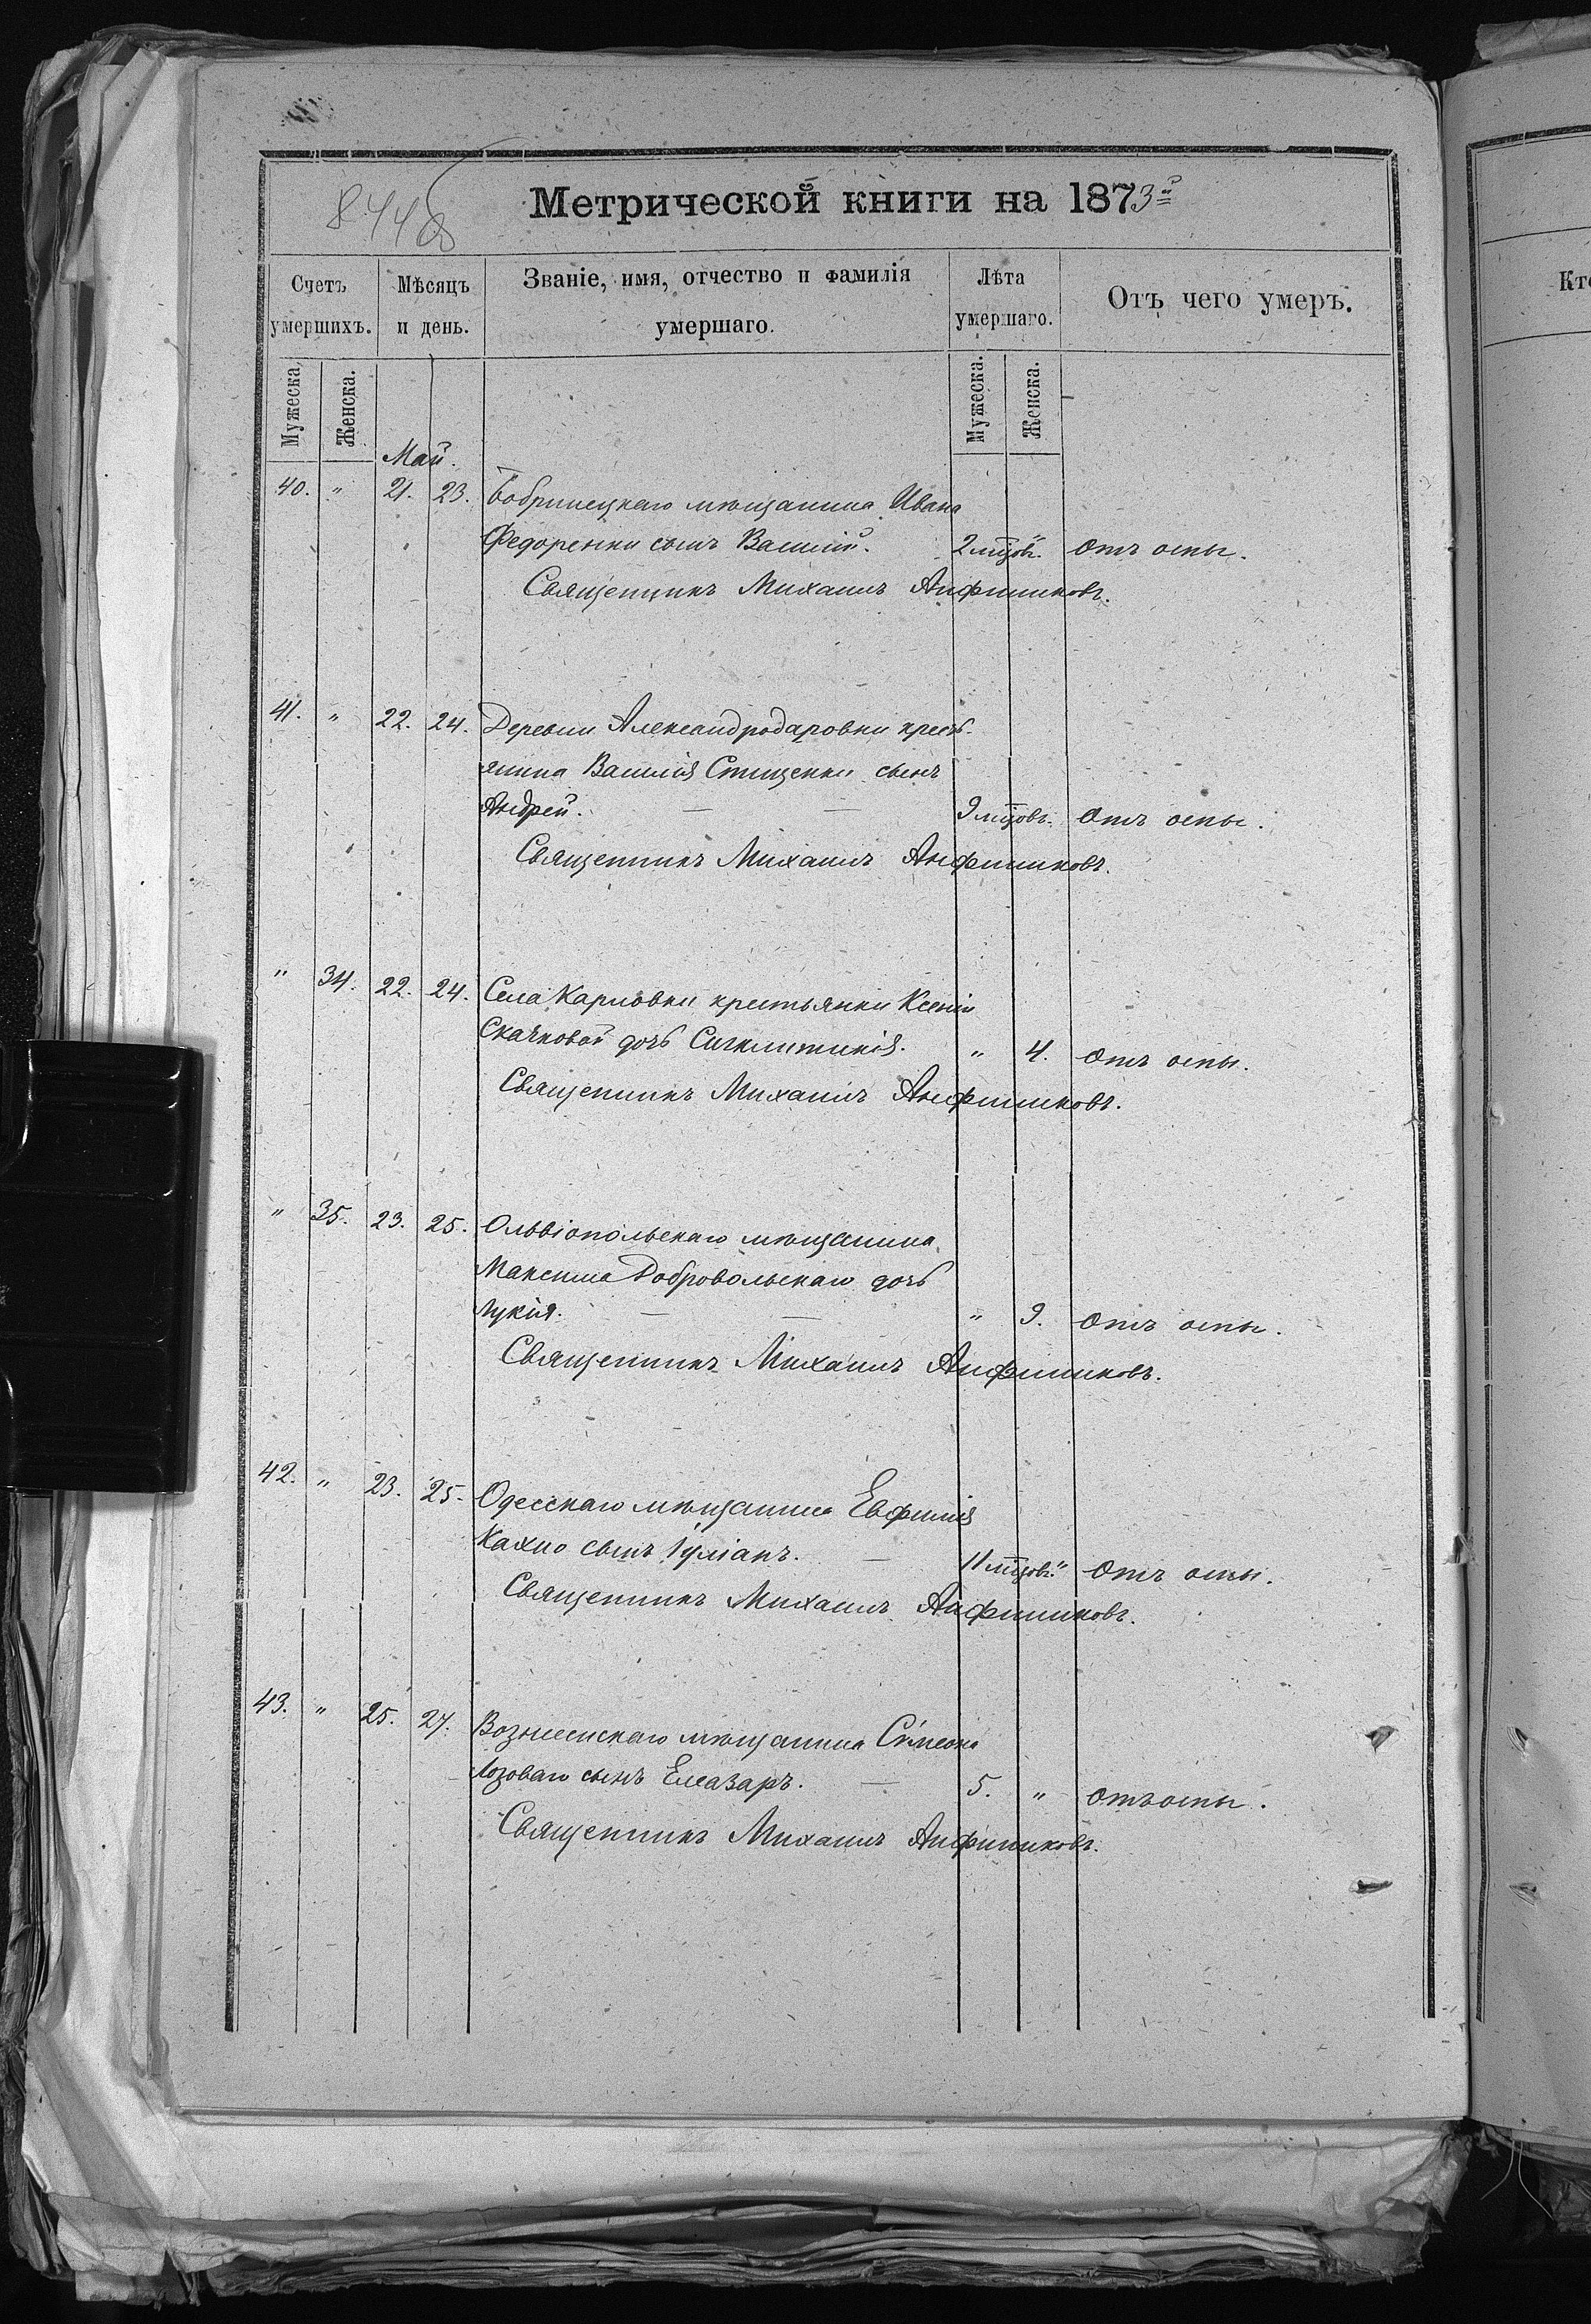 844об
Метрической книги на 1873й
Счетъ умершихъ.
Мѣсяцъ и день.
Званіе, имя, отчество и фамилія умершаго.
Лѣта умершаго.
Отъ чего умеръ.
Мужеска.
Женска.
Мужеска.
Женска.
Май.
40. " 21. 23. Бобринецкаго мѣщанина Ивана
Федоренки сынъ Василій. 2 мцовъ. " отъ оспы.
Священникъ Михаилъ Анфиниковъ.
41. " 22. 24. Деревни Александродаровки кресть-
янина Василія Стищенки сынъ
Андрей. — — 9 мцовъ. отъ оспы.
Священникъ Михаилъ Анфиниковъ.
" 34. 22. 24. Села Карловки крестьянки Ксеніи
Скачковой дочь Сигклитикія. " 4. отъ оспы.
Священникъ Михаилъ Анфиниковъ.
" 35. 23. 25. Ольвіопольскаго мѣщанина
Максима Добровольскаго дочь
Лукія. — — " 9. отъ оспы.
Священникъ Михаилъ Анфиниковъ.
42. " 23. 25. Одесскаго мѣщанина Евфимія
Кахно сынъ Іуліанъ. — 11 мцовъ. " отъ оспы.
Священникъ Михаилъ Анфиниковъ.
43. " 25. 27. Вознесенскаго мѣщанина Сѵмеона
Лозоваго сынъ Елеазаръ. — 5. " отъ оспы.
Священникъ Михаилъ Анфиниковъ.
Кто